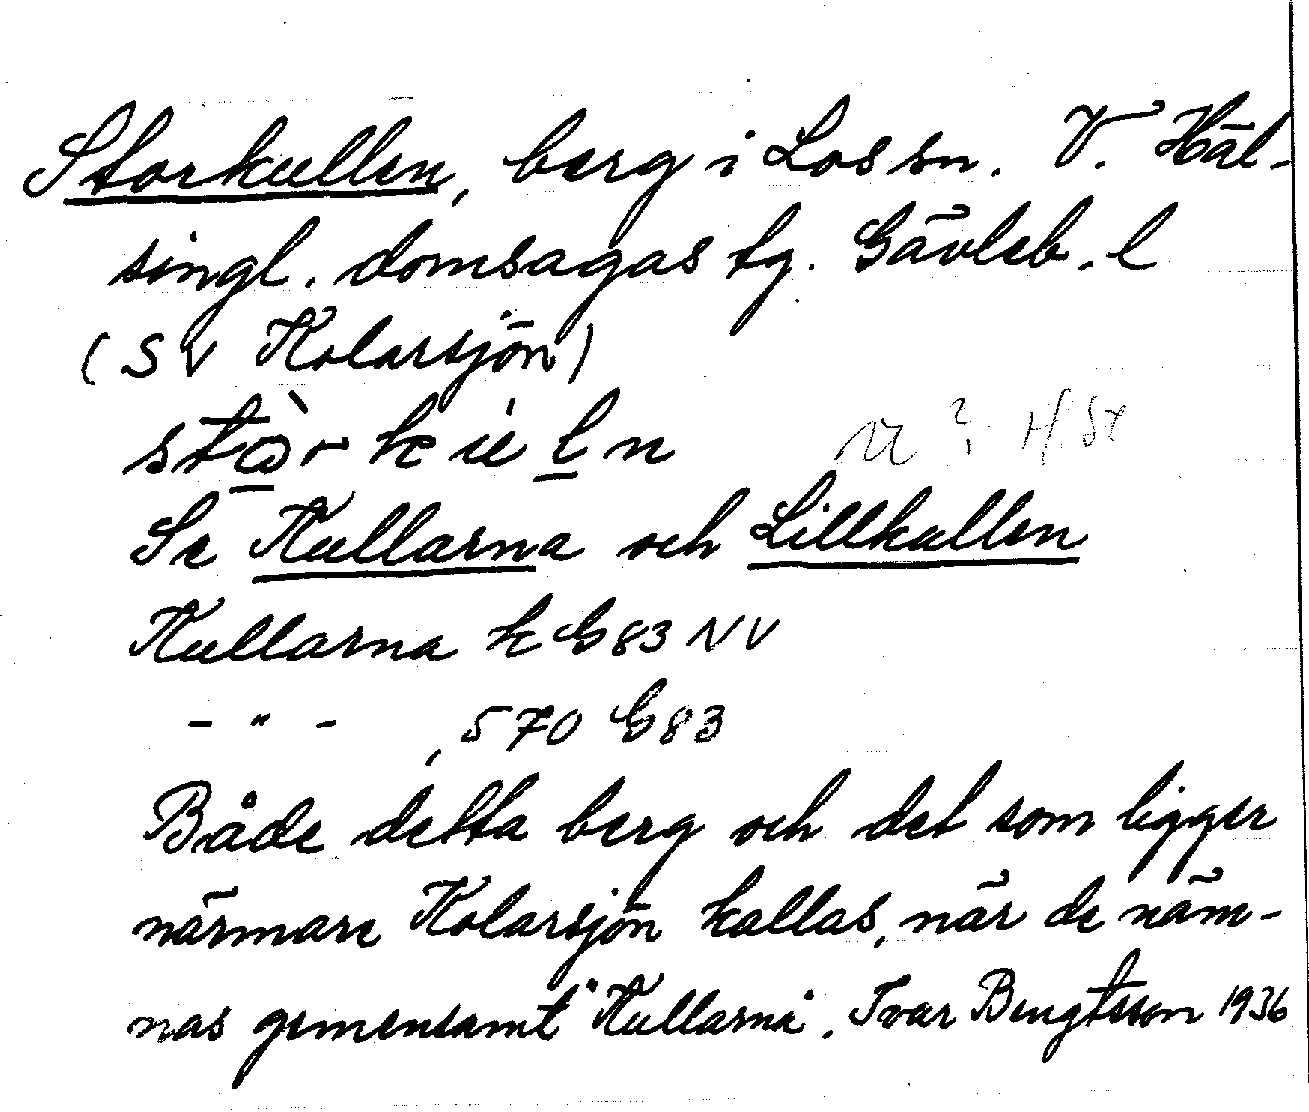 Storkullen, berg i Los sn. V. Häl-
singl. domsagas tg. Gävleb. l
(SV Kolarsjön)
Se Kullarna och Lillkullen
Kullarna k G83 NV
- " - , 570 G83
Både detta berg och det som ligger
närmare Kolarsjön kallas, när de näm-
nas gemensamt "Kullarna". Ivar Bengtsson 1936